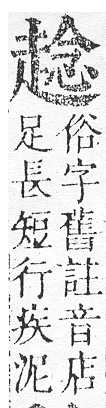 趝
俗字舊註音店
足長短行疾泥